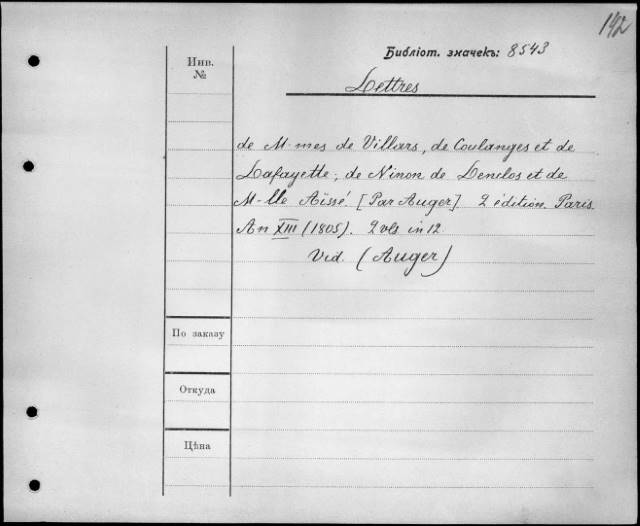 142
Библіот. значекъ: 8543
Инв.
№
Lettres
de M-mes de Villars, de Coulanges et de
Lafayette, de Ninon de Lenclos et de
M-lle Aïssé [Par Auger]. 2 édition. Paris.
An XIII (1805). 2 vls in 12.
Vid. (Auger)
По заказу
Откуда
Цѣна